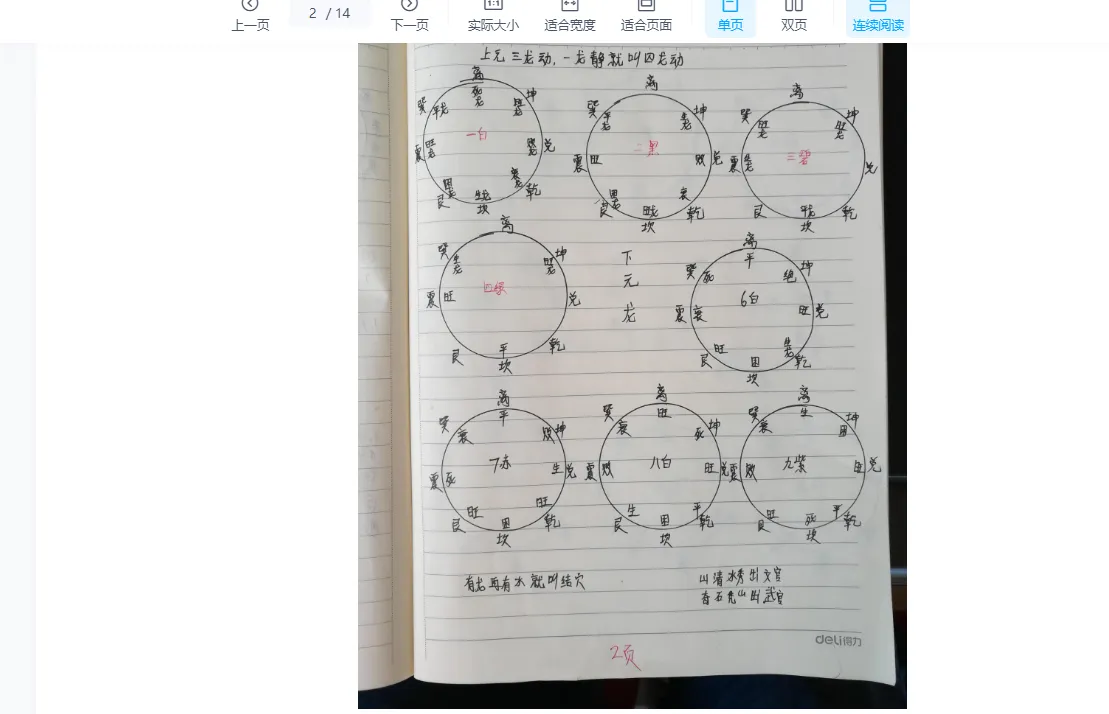 上一页 2 / 14 下一页 实际大小 适合宽度 适合页面 单页 双页 连续阅读
上元三龙动,一龙静就叫四龙动
离
坤
平龙
一白
兑
震
旺龙
乾
艮
生龙
坎
离
平龙
坤
二黑
震 旺 败 兑
衰
艮 乾
坎
离
坤
三碧
震
兑
艮 平龙 乾
坎
离
坤
四绿
震 旺 兑
平
艮 坎 乾
下
元
龙
离
平
死 绝 坤
6白
震 衰 旺 兑
旺 困
艮 坎 乾
离
平
衰 败 坤
7赤
震 死 生 兑
旺 困 旺
艮 坎 乾
离
旺
衰 死 坤
八白
震 败 旺 兑
生 困 平
艮 坎 乾
离
生
衰 困 坤
九紫
震 败 旺 兑
旺 死 平
艮 坎 乾
有龙再有水就叫结穴
山清水秀出文官
有石秃山出武官
deli得力
2页